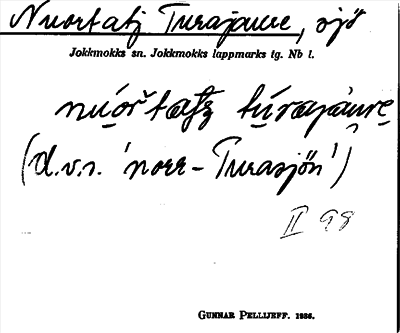 Nuortatj Turajaure, sjö
Jokkmokks sn. Jokkmokks lappmarks tg. Nb l.
(d.v.s. 'norr-Turasjön')
II 98
GUNNAR PELLIJEFF. 1936.